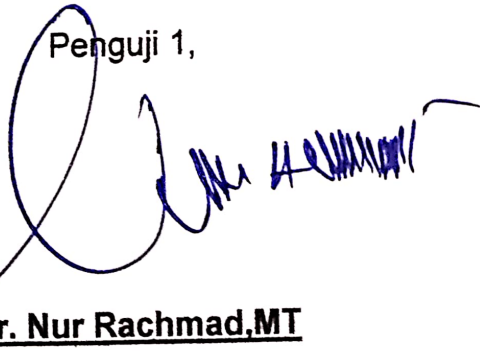 Penguji 1,
r. Nur Rachmad,MT